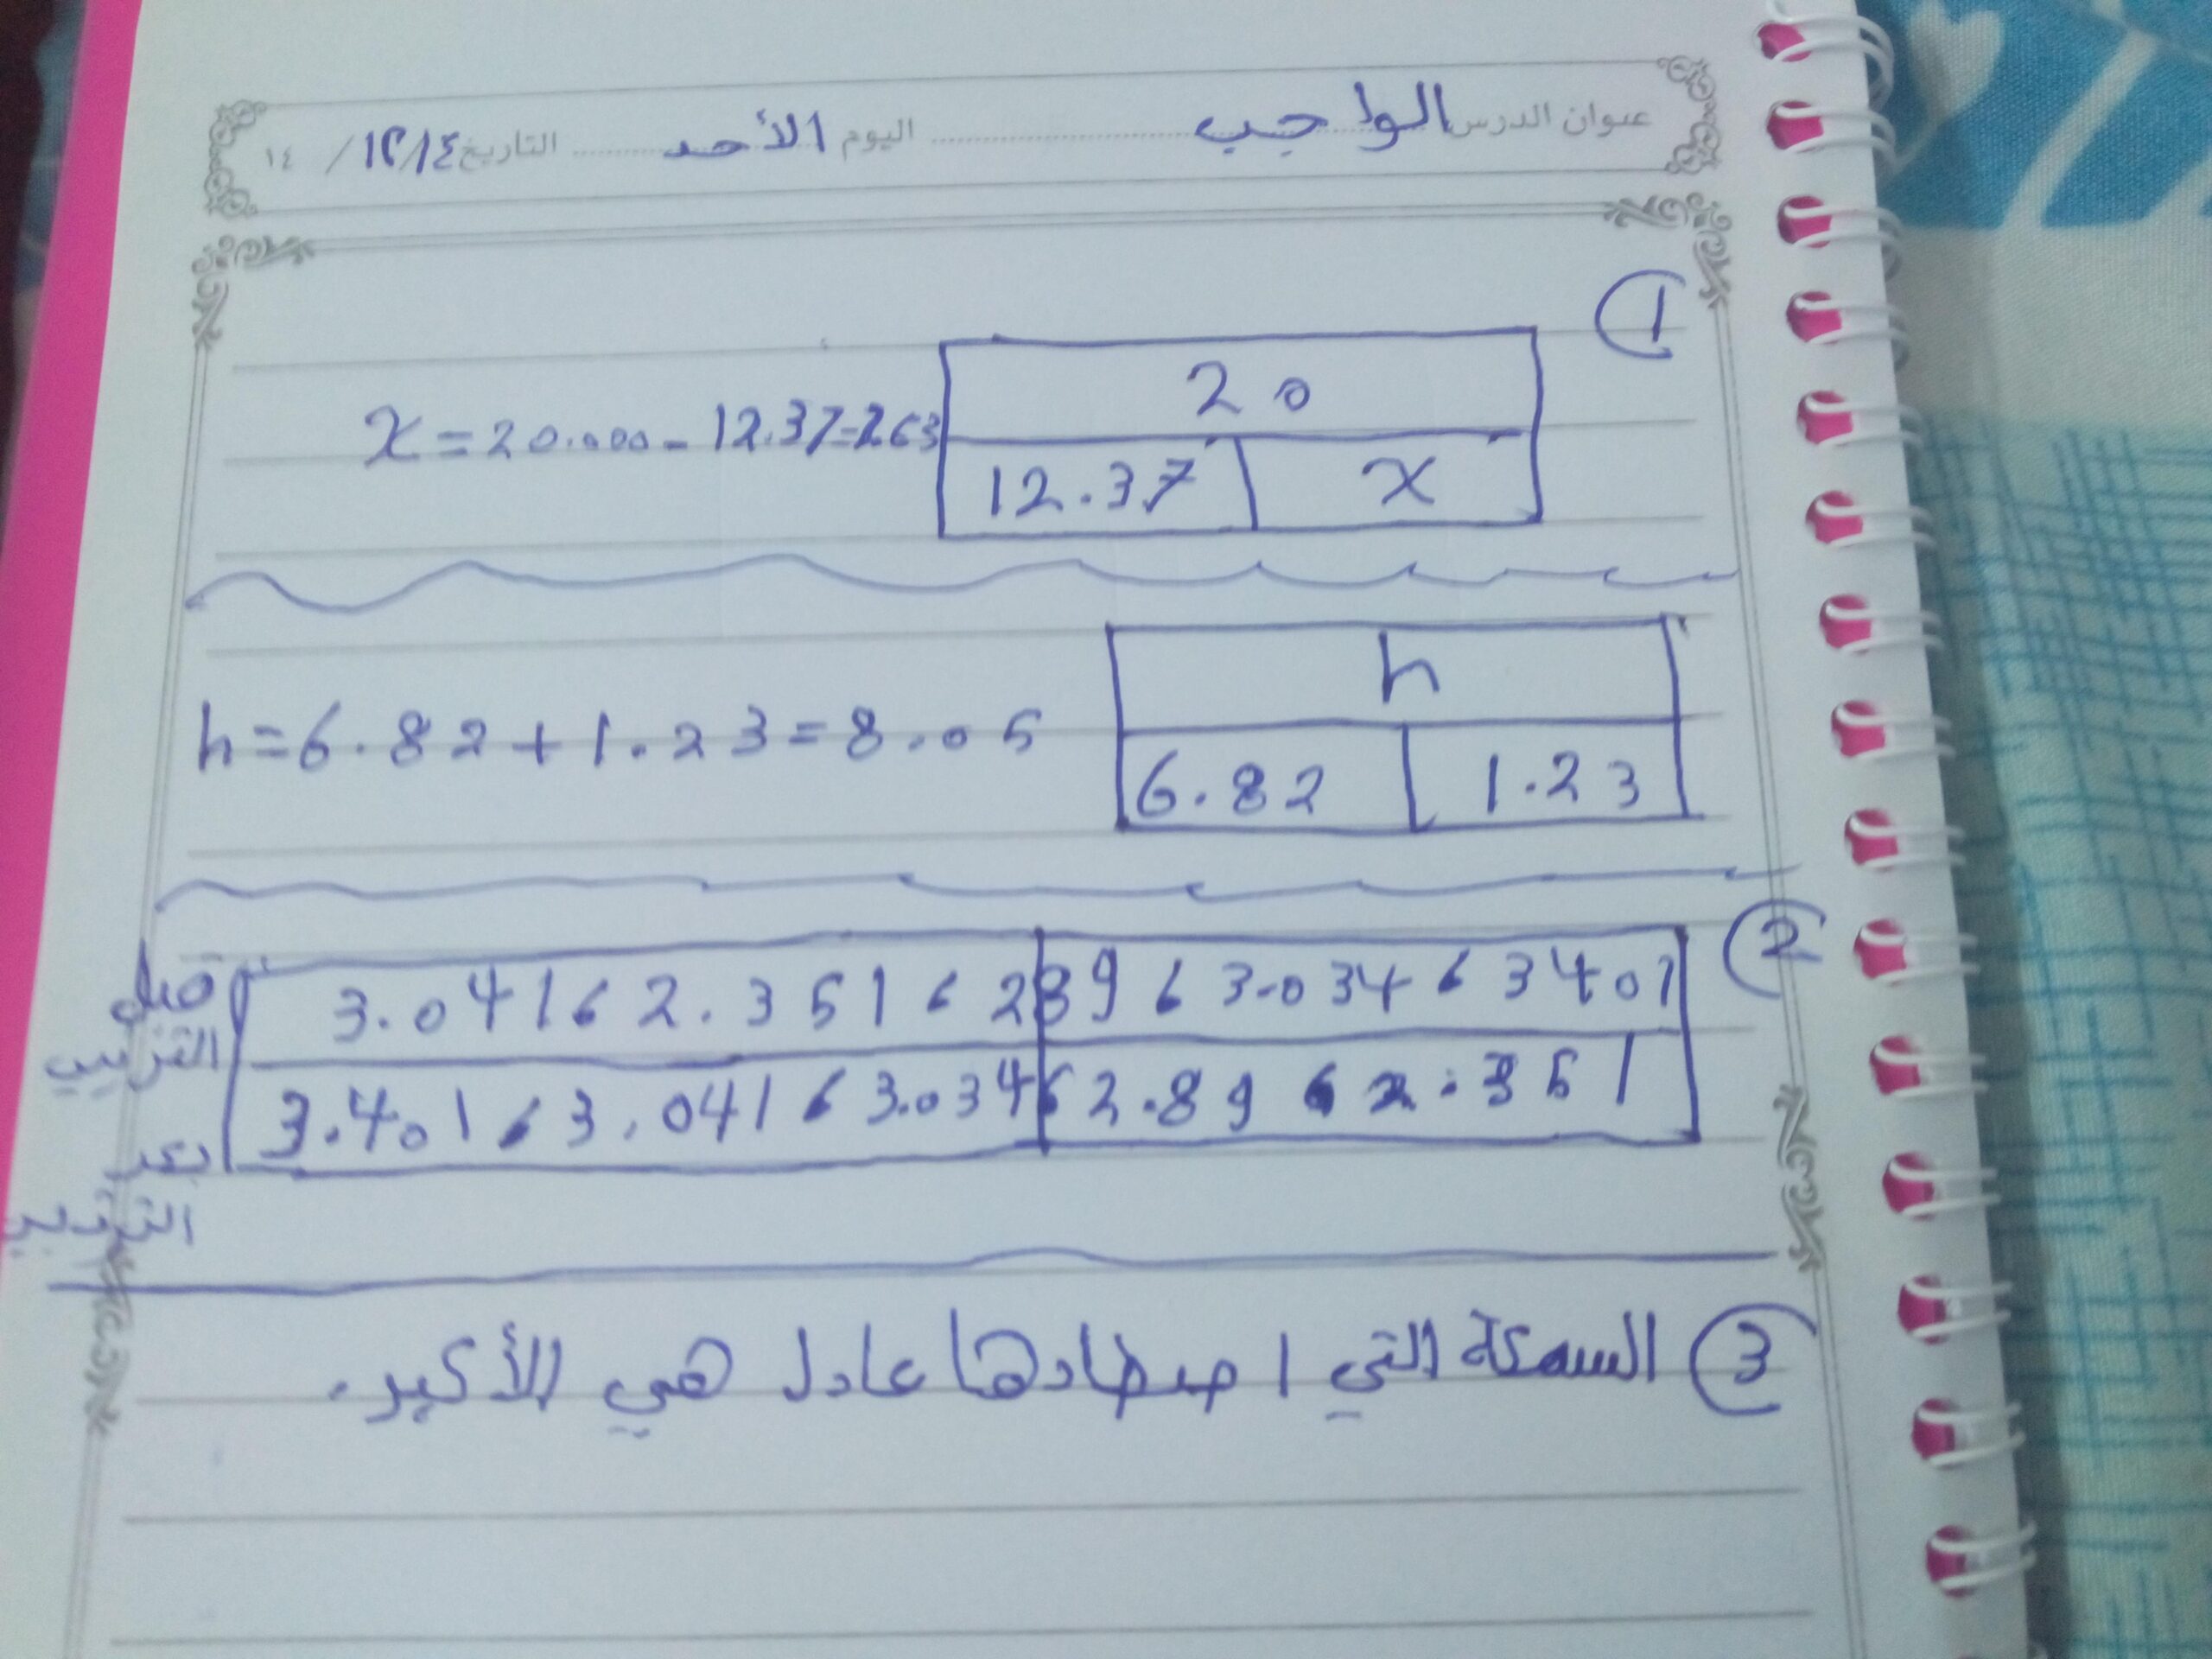 عنوان الدرس الواجب اليوم الأحد التاريخ ١٤/١٢/ ١٤
1
20
x = 20.000 - 12.37 = 263
12.37 x
h
h = 6.82 + 1.23 = 8.05
6.82 1.23
2
قبل الترتيب 3.041 ، 2.351 ، 289 ، 3.034 ، 3401
بعد الترتيب 3.401 ، 3.041 ، 3.034 ، 2.89 ، 2.351
3 السمكة التي اصطادها عادل هي الأكبر.